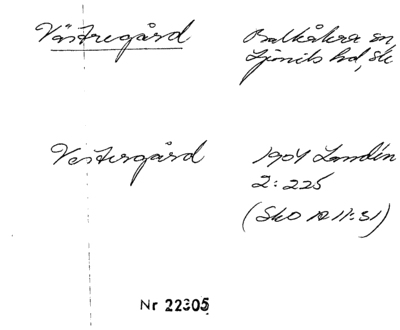 Västregård
Balkåkra sn
Ljunits hd, Sk
Vestergård
1904 Landin
2:225
(SkO 12 11:31)
Nr 22305